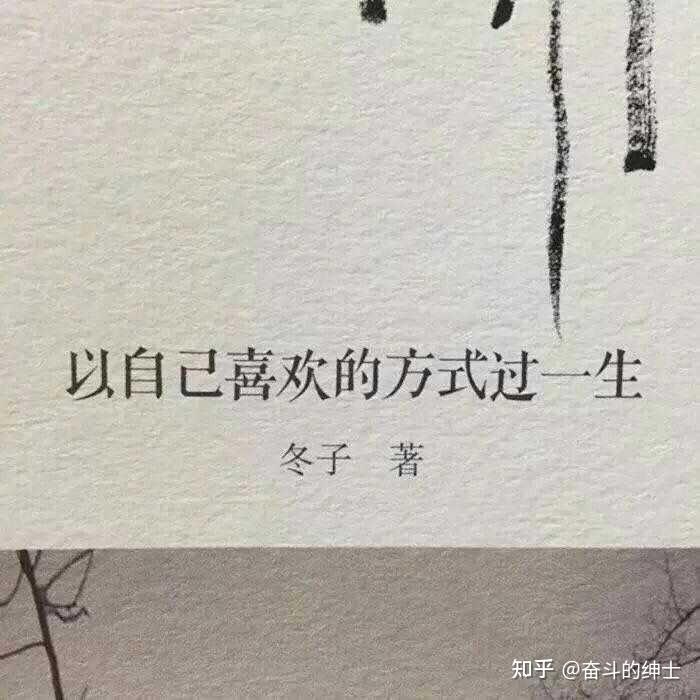 以自己喜欢的方式过一生
冬子 著
知乎 @奋斗的绅士